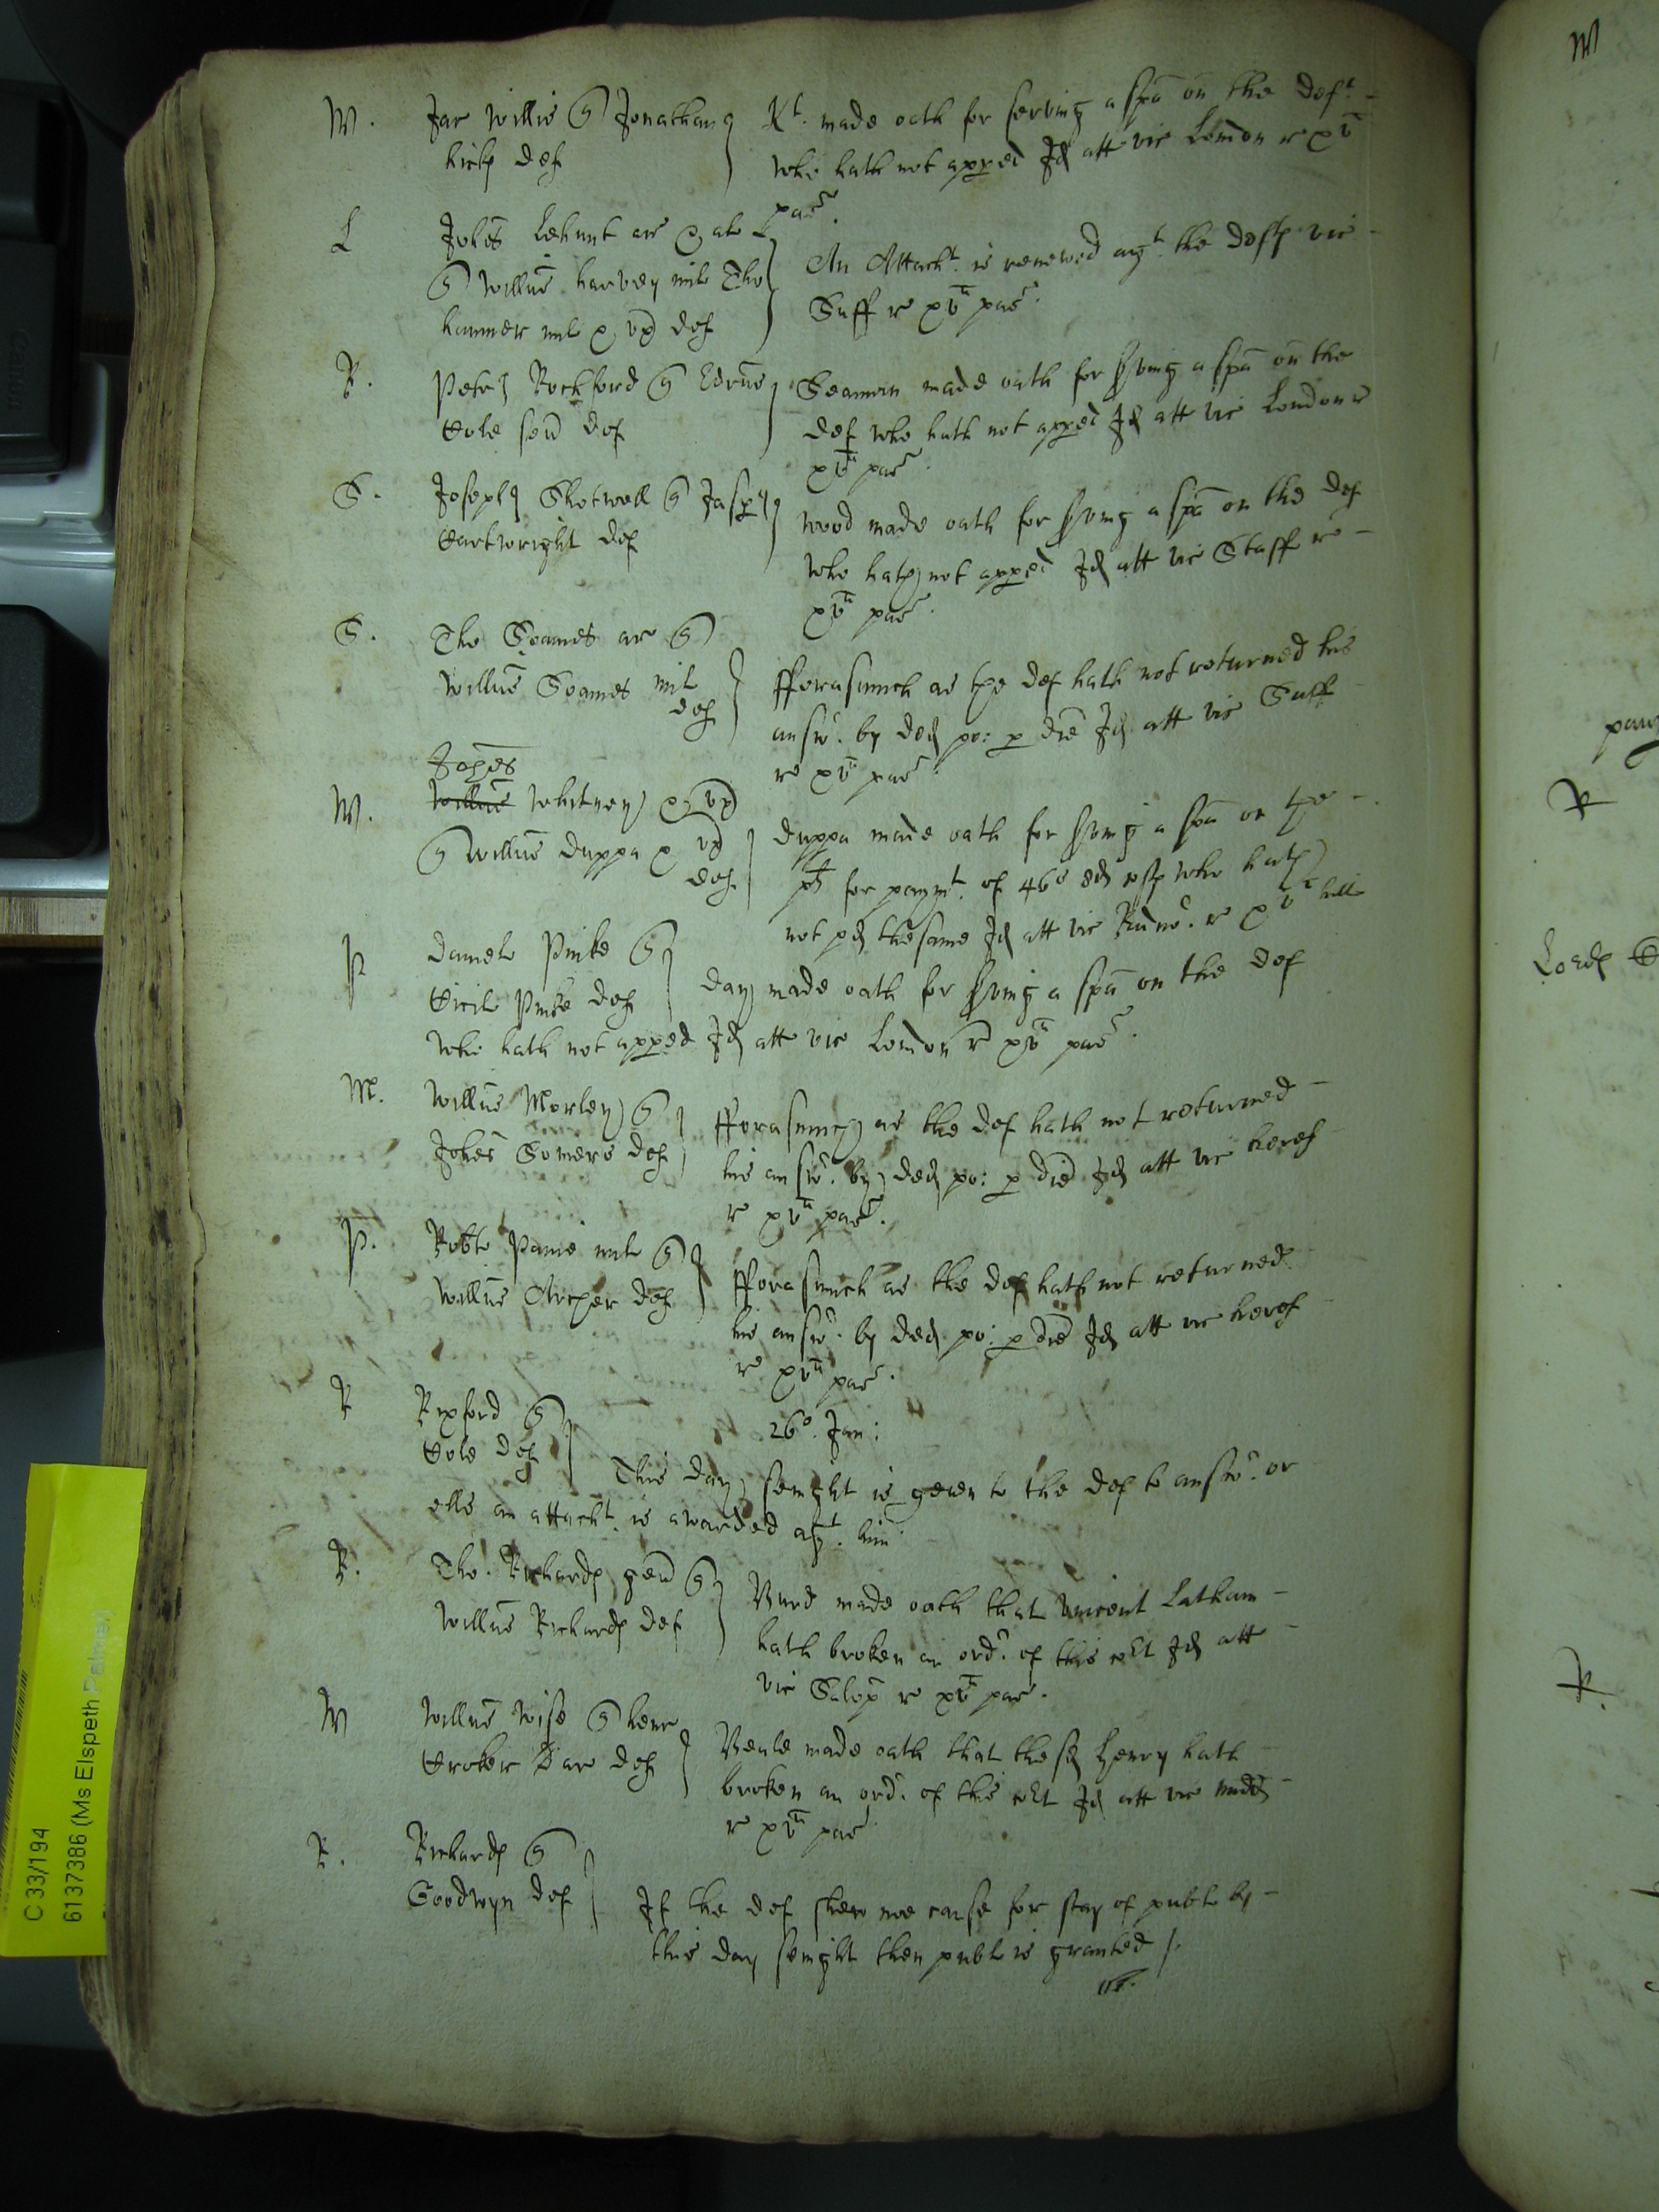 W. Jac Willis Jonathan
Hicks def
Kt. made oath for serving a spa on the deft.
who hath not apped Id att vic London r xv
pas.
L Johes Lehunt ar & al
Willus Harvey mil Tho
Hanmer mil & ux def
An Attacht. is renewed agt. the defts vic
Suff r xv pas.
R. Petr Rochford Edrus
Cole sen def
Seaman made oath for sving a spa on the
def who hath not apped Id att vic London r
xv pas.
S. Joseph Shotwell Jasper
Cartwright def
Wood made oath for sving a spa on the def
who hath not apped Id att vic Staff r
xv pas.
S. Tho Soames ar
Willus Soames mil
def
fforasmuch as the def hath not returned his
answ. by ded po: p die Id att vic Suff
r xv pas.
Johes
W. Willus Whitney & ux
Willus Duppa & ux
def
Duppa made oath for sving a spa on the
plt for paymt. of 46s 8d costs who hath
not pd the same Id att vic r xv hill
P Daniel Pinke
Cicil Pinke def
Day made oath for sving a spa on the def
who hath not apped Id att vic London r xv pas.
M. Willus Morley
Johes Somers def
fforasmuch as the def hath not returned
his answ. by ded po: p die Id att vic heref
r xv pas.
P. Robte Paine mil
Willus Archer def
fforasmuch as the def hath not returned
his answ. by ded po: p die Id att vic heref
r xv pas.
26o. Jan:
R Rixford
Cole def
This day senight is geven to the def to answ. or
else an attacht. is awarded agt. him
R. Tho. Richards gen
Willus Richards def
Burd made oath that Vincent Latham
hath broken an ord. of this cort Id att
vic Salop r xv pas.
W Willus Wise Henr
Croker Bar def
Beale made oath that the sd Henry hath
broken an ord. of this cort Id att vic Midd
r xv pas
R. Richards
Goodwyn def
If the def shew noe cause for stay of publ by
this day senight then publ is granted /.
C 33/194
6137386 (Ms Elspeth Palmer)
W
R
R.